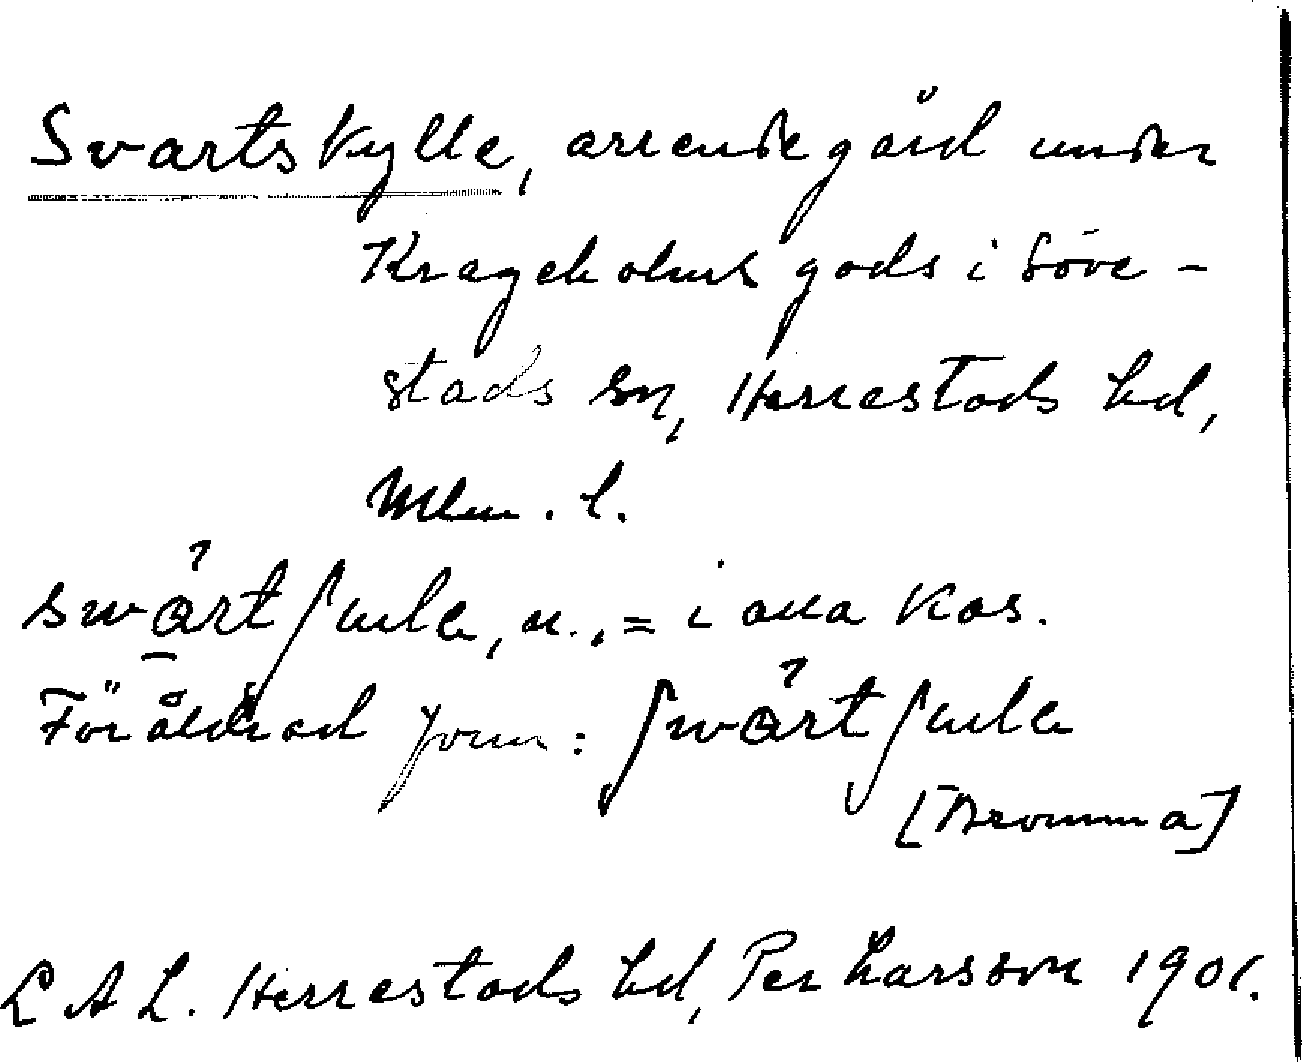 Svartskylle, arrendegård under
Krageholms gods i Söve-
stads sn, Herrestads hd,
Mlm. l.
swårtʃuile, n., = i alla kas.
Föråldrad form: ʃwårtʃuile
[Bromma]
L A L. Herrestads hd, Per Larsson 1901.